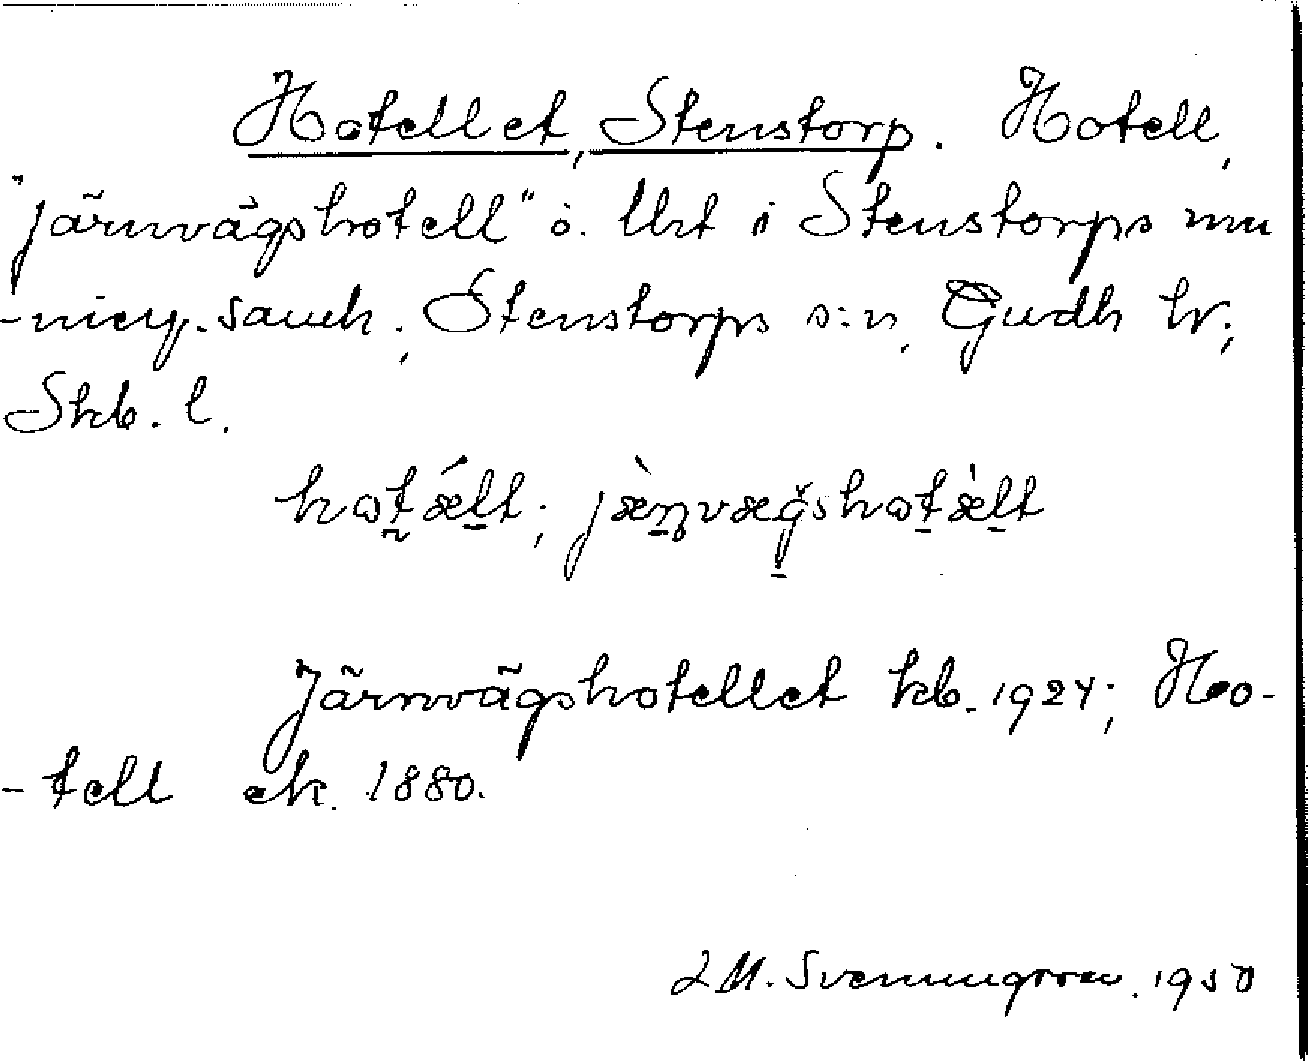 Hotellet, Stenstorp. Hotell,
"järnvägshotell" o. Urt i Stenstorps mu
-nicip. samh., Stenstorps s:n, Gudh hr;
Skb. l.
hotǽlt; jæ̀ṇvægshotæ̀lt
Järnvägshotellet kb. 1924; Ho-
-tell ek. 1880.
L M. Svenungsson. 1950